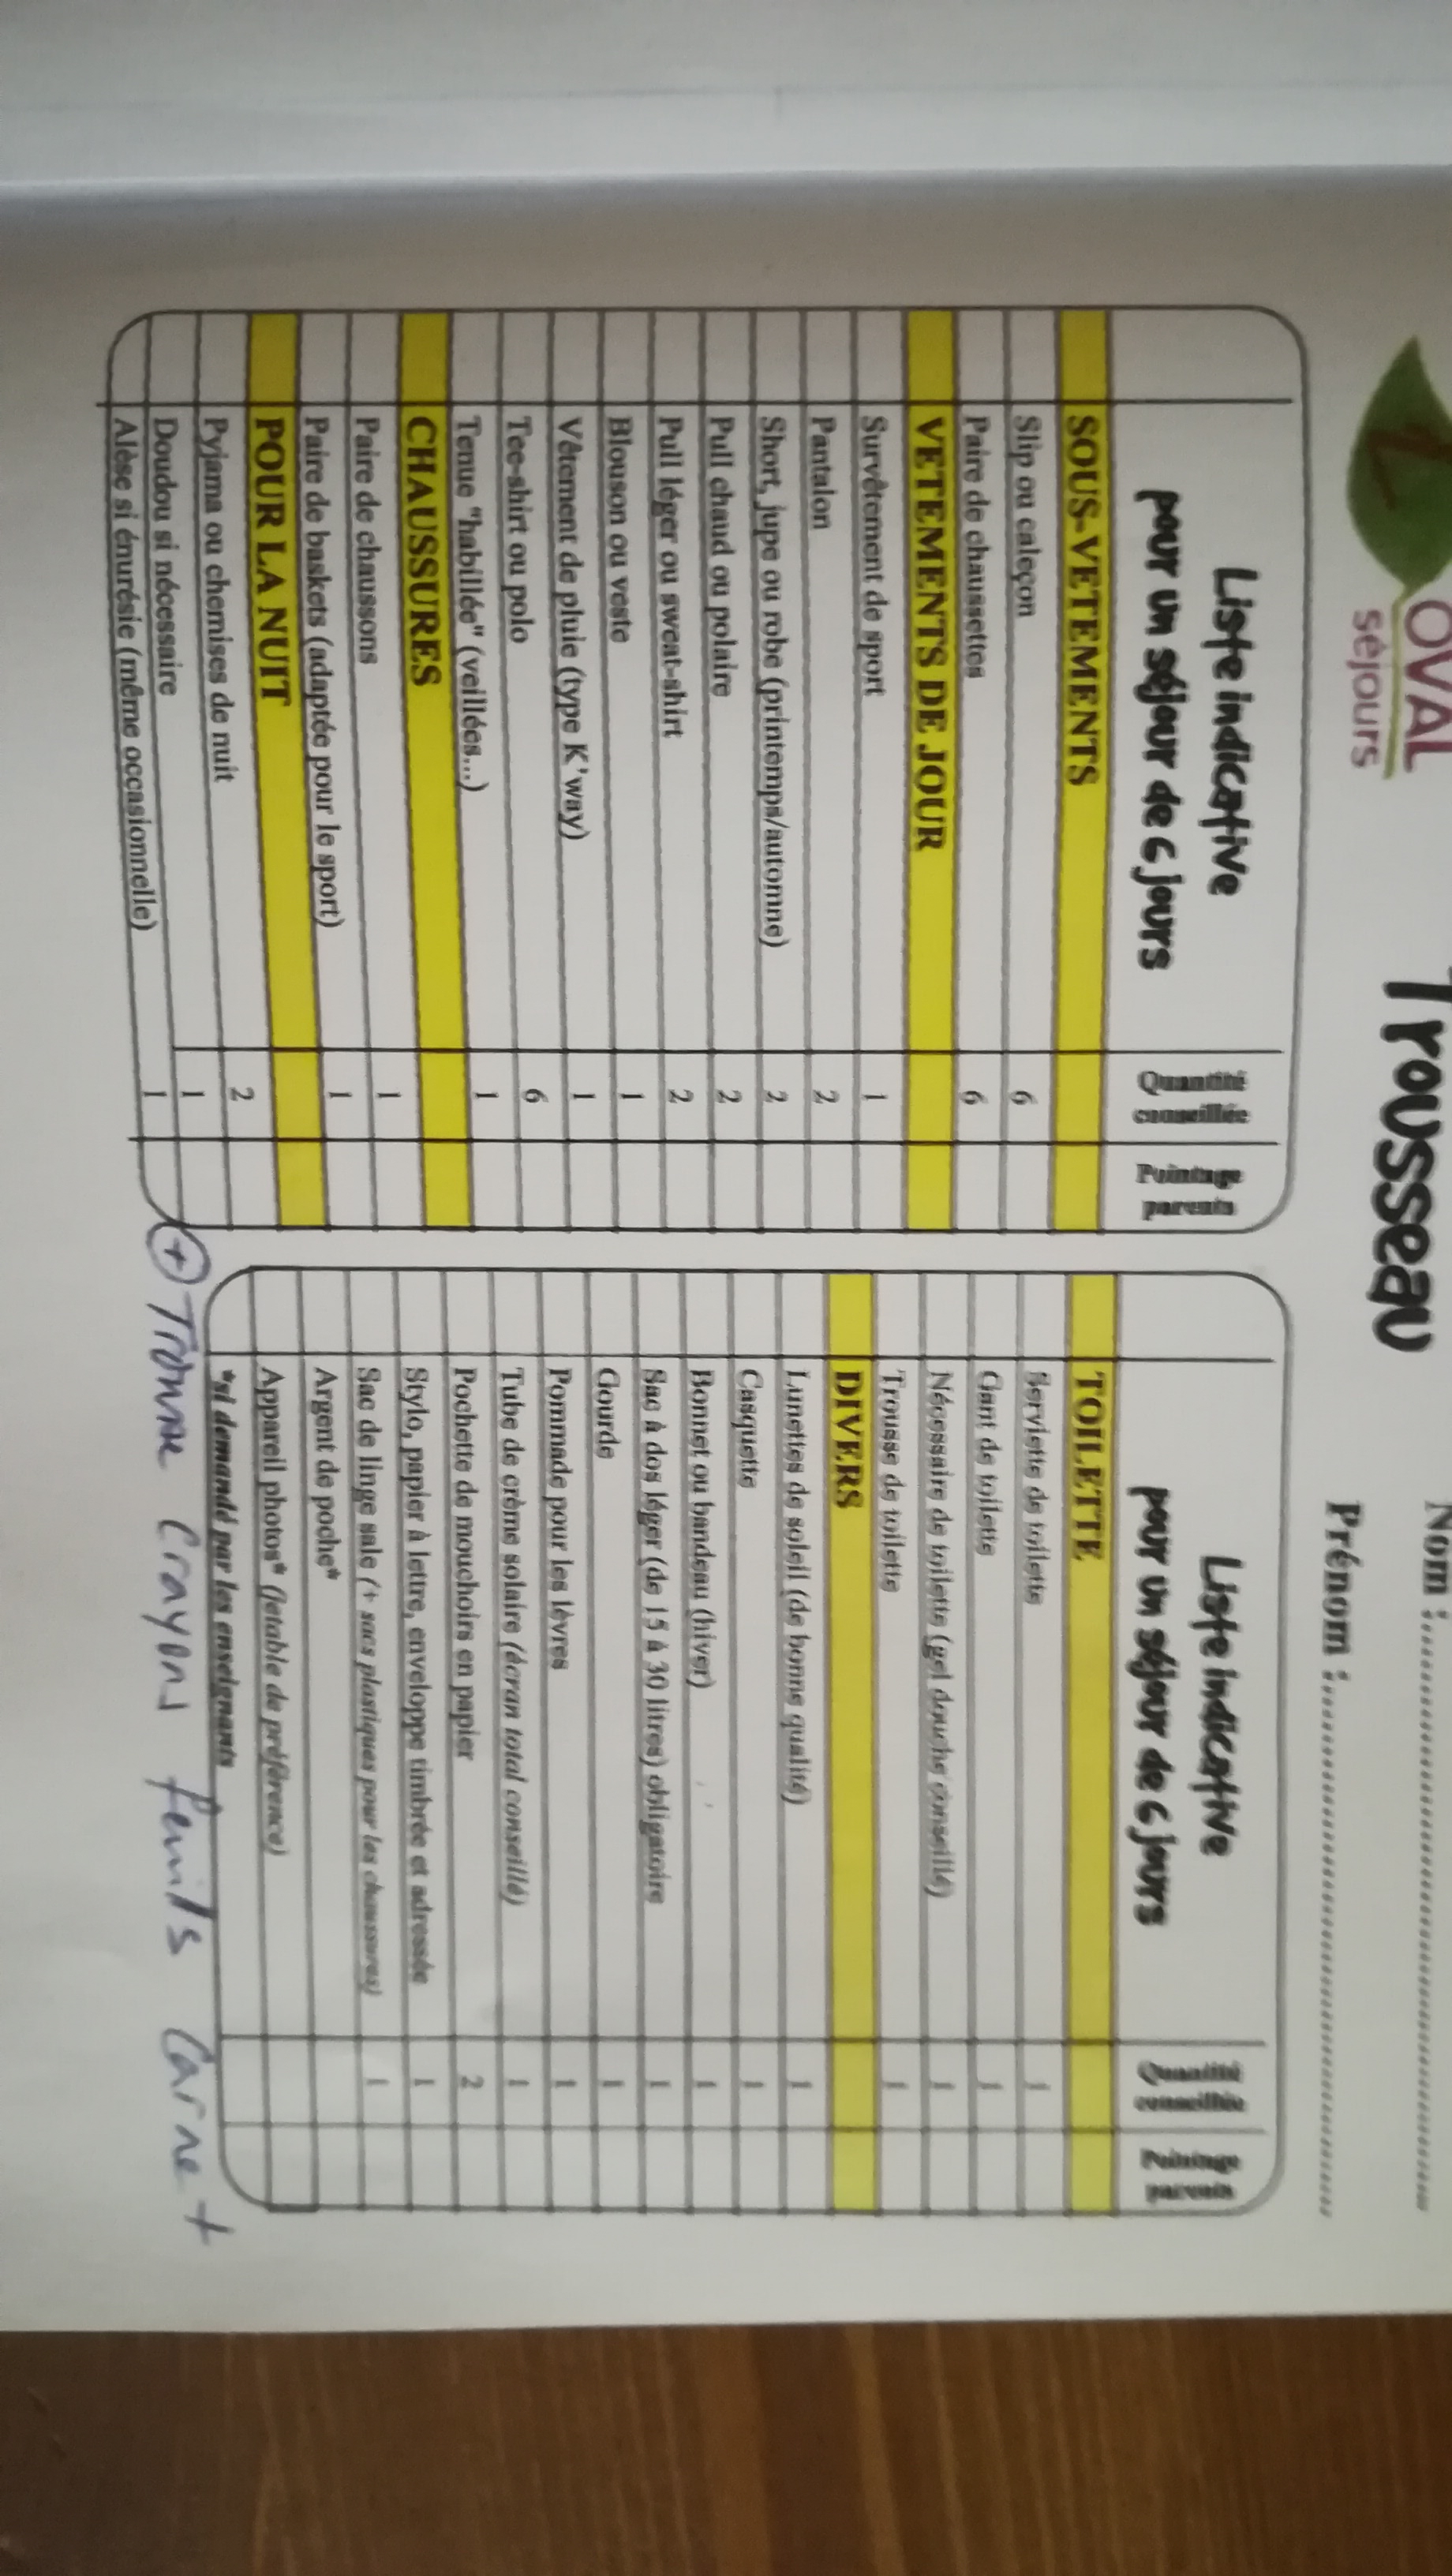 OVAL
séjours
Trousseau
Nom :
Prénom :
Liste indicative
pour un séjour de 6 jours
Quantité
conseillée
Pointage
parents
SOUS-VETEMENTS
Slip ou caleçon 6
Paire de chaussettes 6
VETEMENTS DE JOUR
Survêtement de sport 1
Pantalon 2
Short, jupe ou robe (printemps/automne) 2
Pull chaud ou polaire 2
Pull léger ou sweat-shirt 2
Blouson ou veste 1
Vêtement de pluie (type K'way) 1
Tee-shirt ou polo 6
Tenue "habillée" (veillées...) 1
CHAUSSURES
Paire de chaussons 1
Paire de baskets (adaptée pour le sport) 1
POUR LA NUIT
Pyjama ou chemises de nuit 2
Doudou si nécessaire 1
Alèse si énurésie (même occasionnelle) 1
Liste indicative
pour un séjour de 6 jours
Quantité
conseillée
Pointage
parents
TOILETTE
Serviette de toilette 1
Gant de toilette 1
Nécessaire de toilette (gel douche conseillé) 1
Trousse de toilette 1
DIVERS
Lunettes de soleil (de bonne qualité) 1
Casquette 1
Bonnet ou bandeau (hiver) 1
Sac à dos léger (de 15 à 30 litres) obligatoire 1
Gourde 1
Pommade pour les lèvres 1
Tube de crème solaire (écran total conseillé) 1
Pochette de mouchoirs en papier 2
Stylo, papier à lettre, enveloppe timbrée et adressée 1
Sac de linge sale (+ sacs plastiques pour les chaussures) 1
Argent de poche*
Appareil photos* (jetable de préférence)
*si demandé par les enseignants
+ crayons carnet